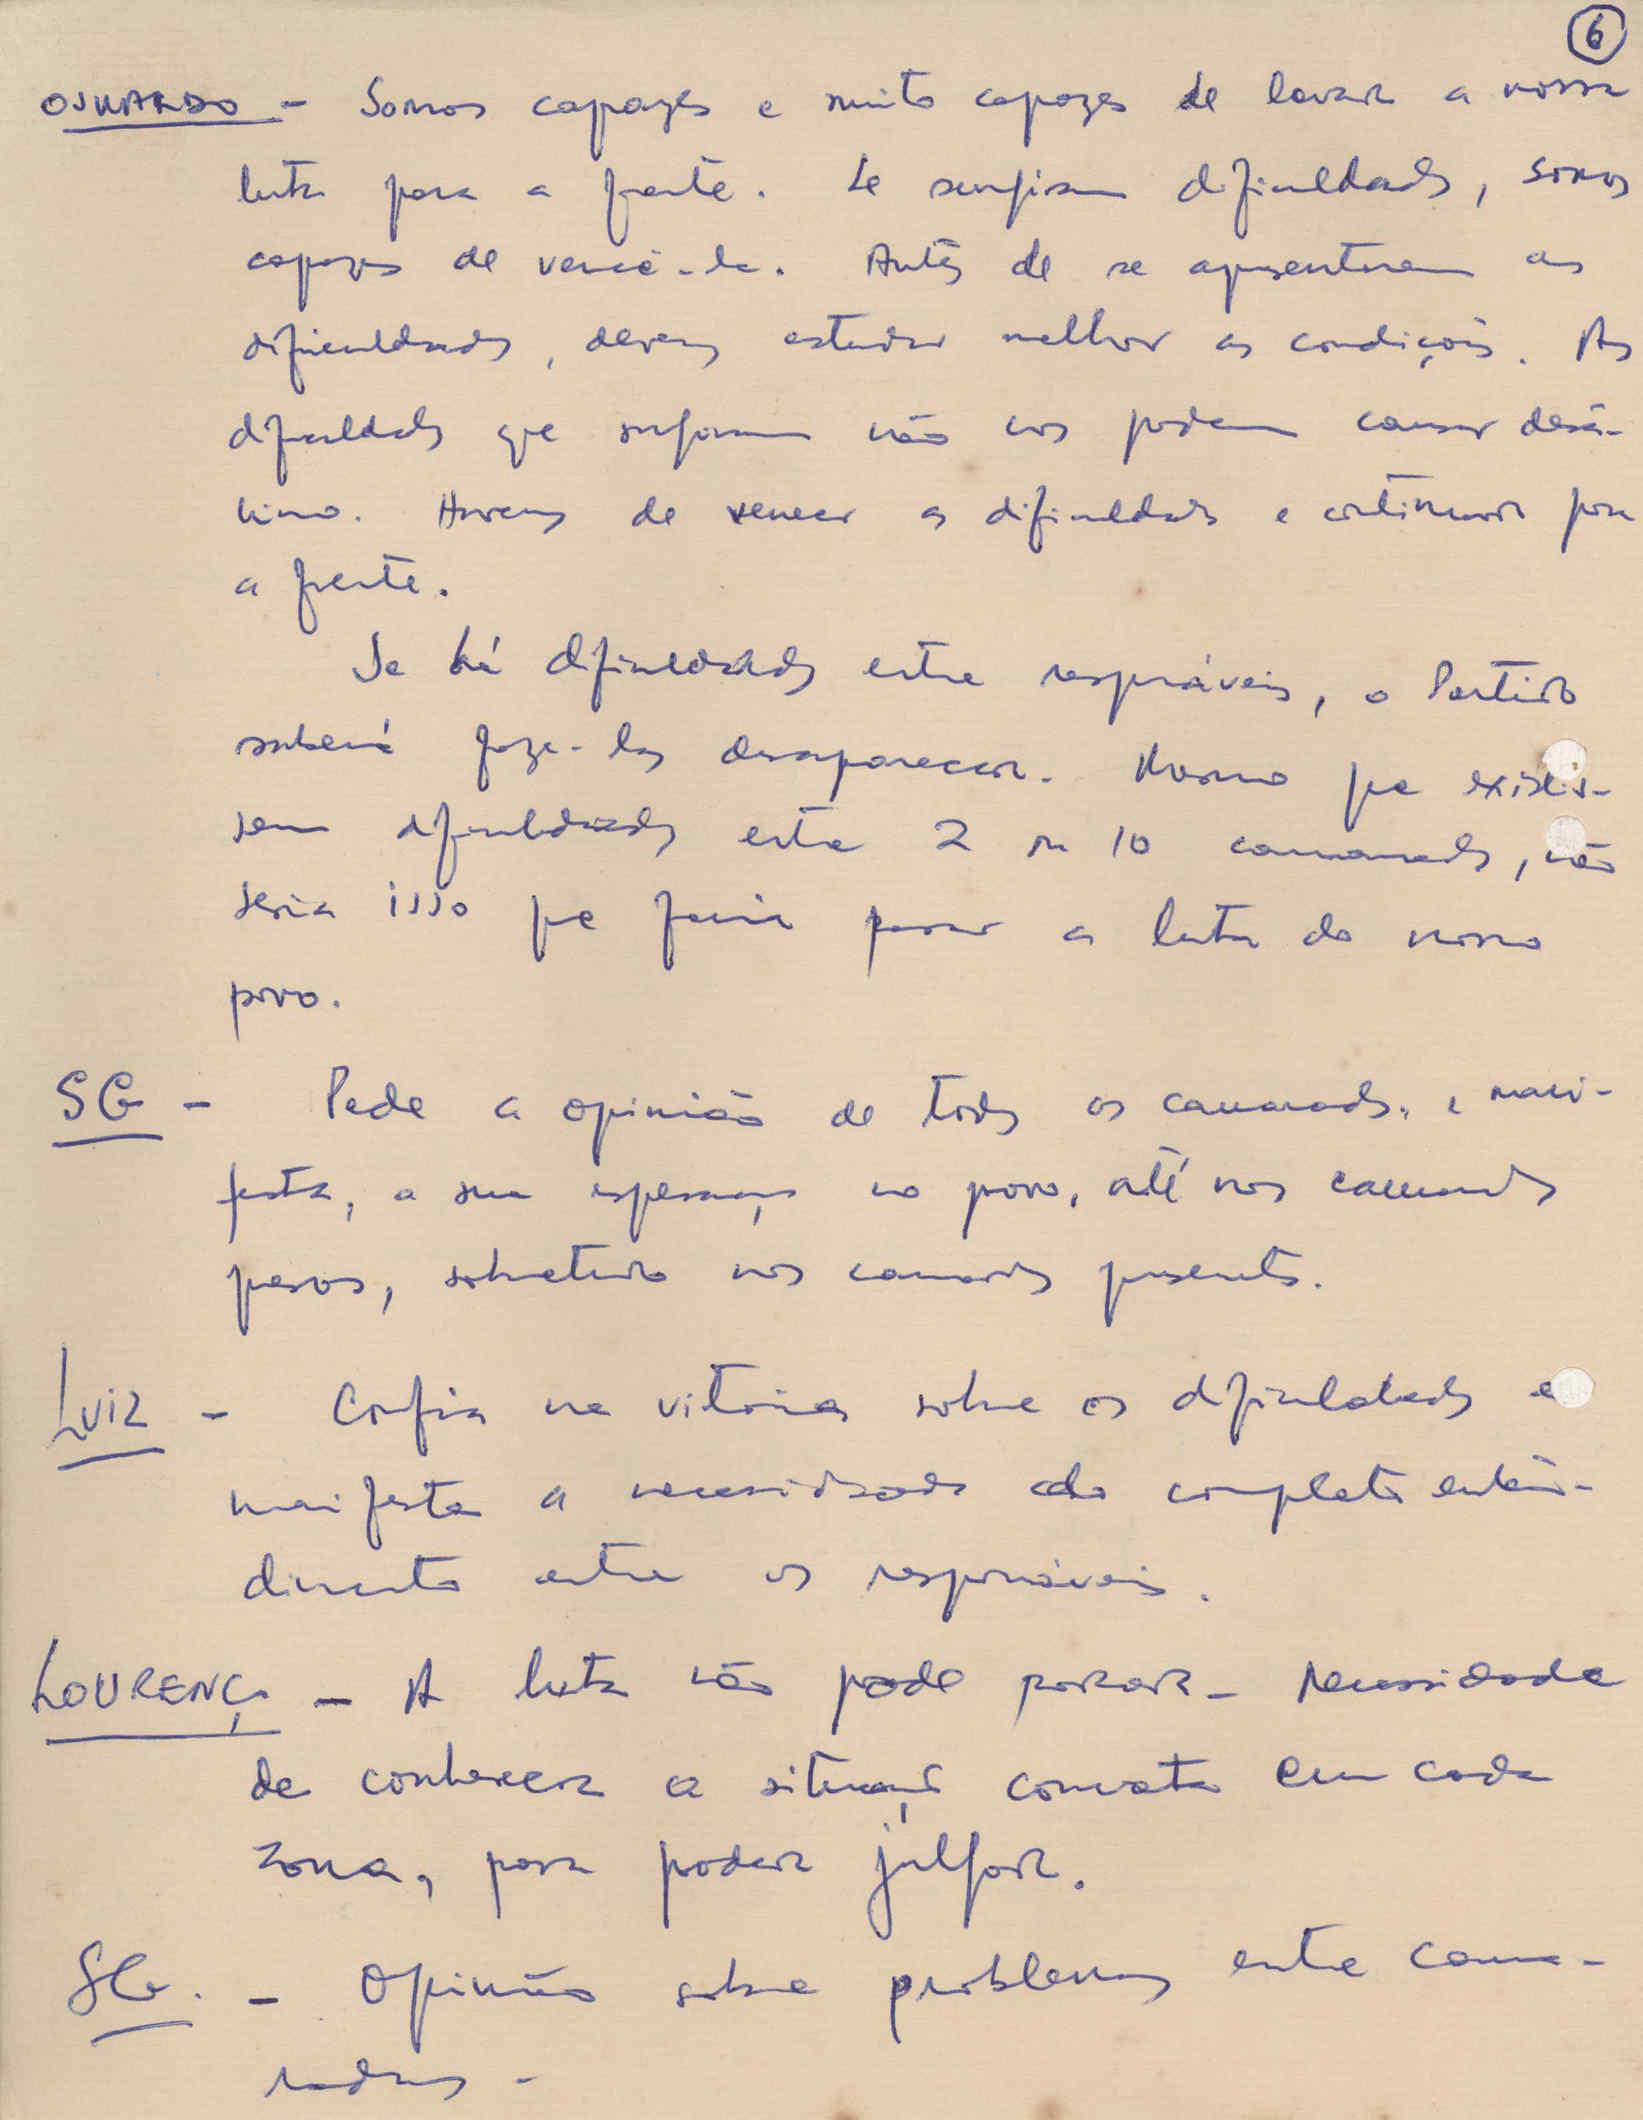 6
OSVALDO - Somos capazes e muito capazes de levar a nossa
luta para a frente. Se surgiram dificuldades, somos
capazes de vencê-las. Antes de se apresentarem as
dificuldades, devemos estudar melhor as condições. As
dificuldades que surgiram não nos podem causar desâ-
nimo. Havemos de vencer as dificuldades e continuar para
a frente.
Se há dificuldades entre responsáveis, o Partido
saberá fazê-las desaparecer. Mesmo que existis-
sem dificuldades entre 2 ou 10 camaradas, não
seria isso que faria parar a luta do nosso
povo.
SG - Pede a opinião de todos os camaradas, e mani-
festa, a sua esperança no povo, até nos camaradas
presos, sobretudo nos camaradas presentes.
LUIZ - Confia na vitória sobre as dificuldades e
manifesta a necessidade do completo enten-
dimento entre os responsáveis.
LOURENÇO - A luta não pode parar - Necessidade
de conhecer a situação concreta em cada
zona, para poder julgar.
SG. - Opinião sobre problemas entre cama-
radas -